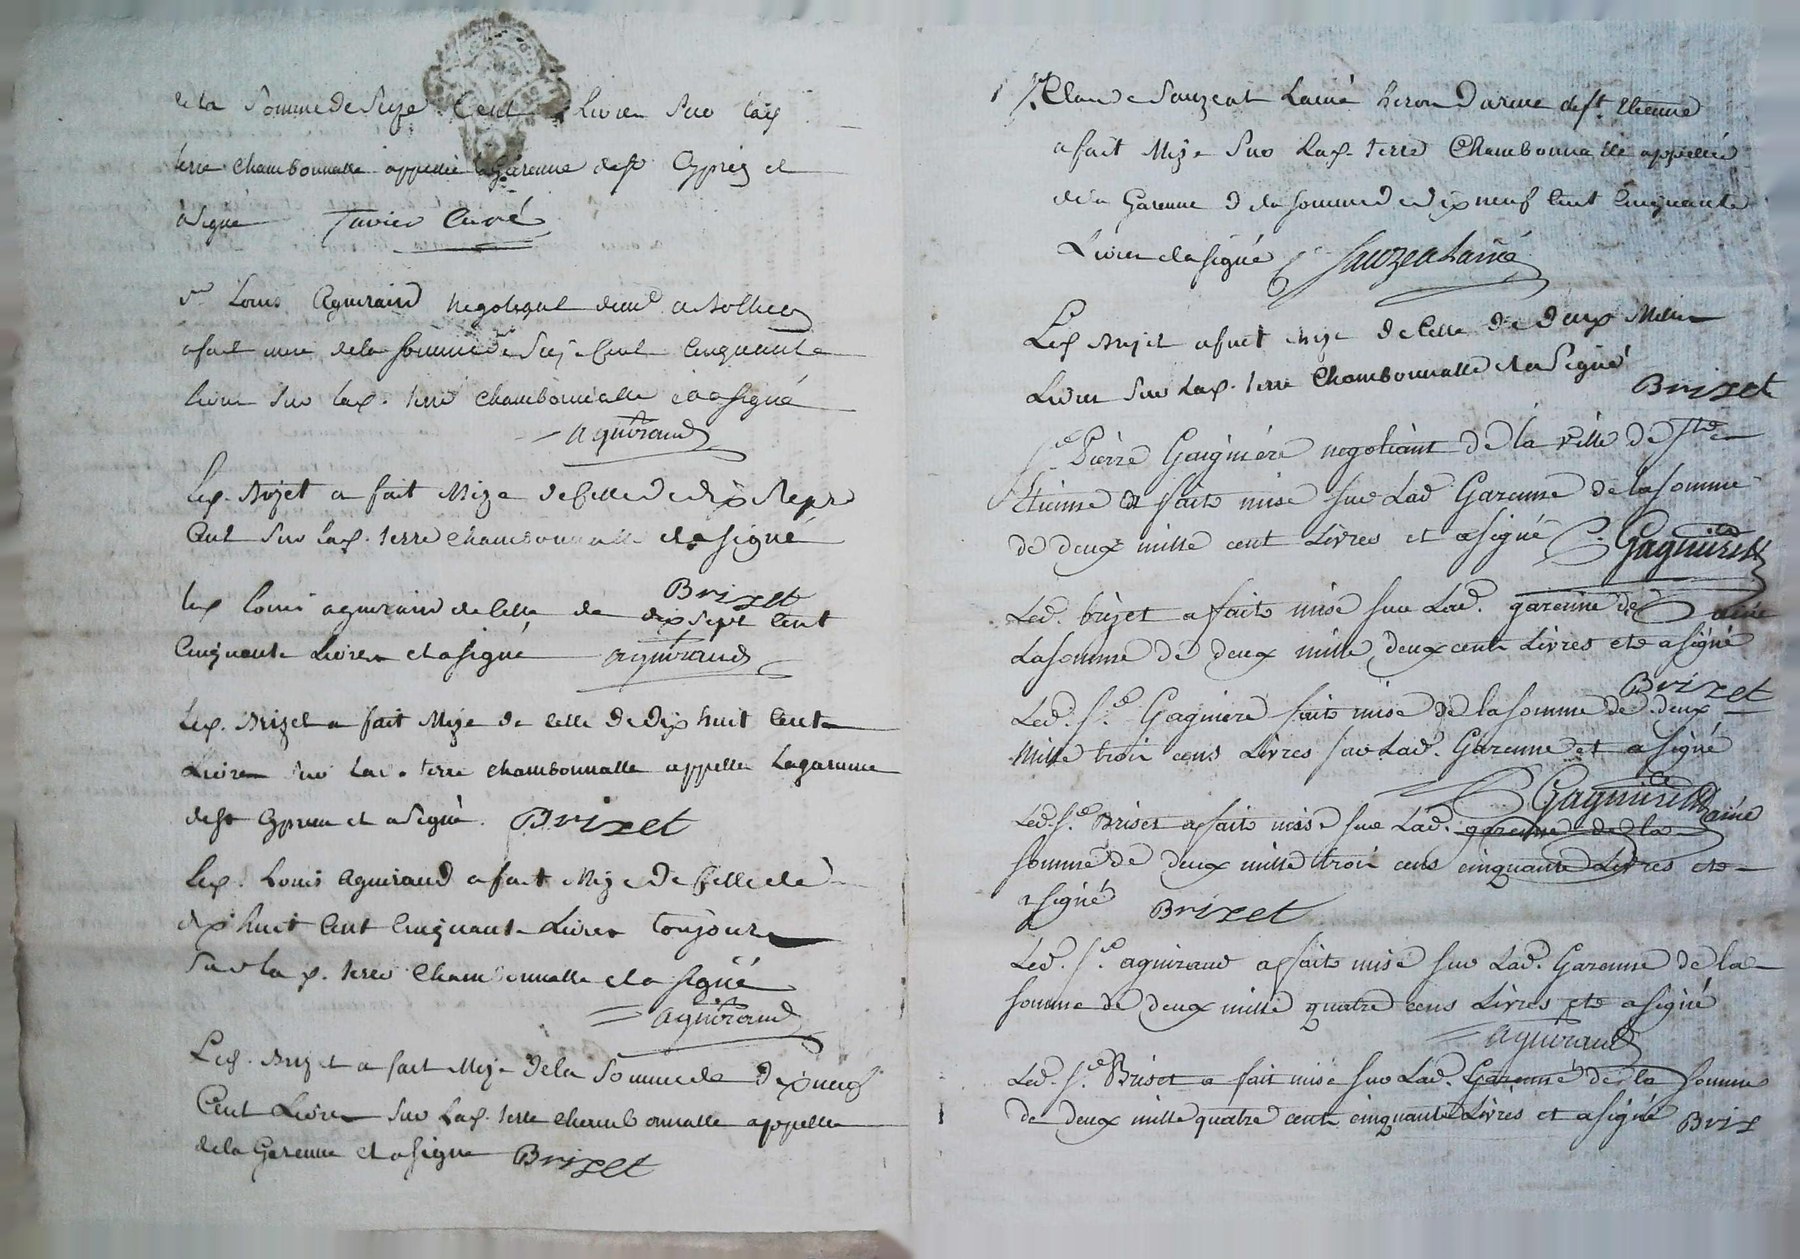 de la Somme de Seize Cent Livres Sur lad
terre Chambonnalle appellée la Garenne de st Cyprien et
a Signé Tavier Curé
sr Louis Aguiraud negotiant dem a
a fait mise de la somme de Seize Cent Cinquante
livres Sur lad. terre Chambonnalle et a signé
aguiraud
Led. Brizet a fait Mize de Celle de dix Sept
Cent Sur lad. terre Chambonnalle et a signé
Brizet
led Louis aguiraud de Celle de dix Sept Cent
Cinquante Livres et a signé aguiraud
Led. Brizet a fait Mize de Celle de dix huit Cent
Livres Sur lad. terre Chambonnalle appellée Lagarenne
de st Cyprien et a Signé. Brizet
Led. Louis aguiraud a fait Mize de Celle de
dix huit Cent Cinquante Livres toujours
Sur la d. terre Chambonnalle et a signé
aguiraud
Led. Brizet a fait Mize de la Somme de dix neuf
Cent Livres Sur Lad. terre Chambonnalle appellée
de la Garenne et a Signé Brizet
sr Claude Sauzea Lainé de st. Etienne
a fait Mize Sur Lad. terre Chambonnalle appellée
de la Garenne de la somme de dix neuf Cent Cinquante
Livres et a signé Sauzea Lainé
Led Brizet a fait mize de Celle de deux Mille
Livres Sur Lad. terre Chambonnalle et a Signé
Brizet
sr. Pierre Gaignière negotiant de la ville de st
Etienne a fait mise sur Lad Garenne de la somme
de deux mille cent Livres et a signé Gagniere
Led. brizet a fait mise sur Lad. garenne de ainé
La somme de deux mille deux cent Livres et a signé
Brizet
Led. sr. Gagniere fait mise de la somme de deux
Mille trois cens Livres sur Lad. Garenne et a signé
Gagniere ainé
Led. sr. Briset a fait mise sur Lad. garenne de la
somme de deux mille trois cens cinquante Livres et
a signé Brizet
Led. sr. aguiraud a fait mise sur Lad. Garenne de la
somme de deux mille quatre cens Livres et a signé
aguiraud
Led. sr. Briset a fait mise sur Lad. Garenne de la somme
de deux mille quatre cent cinquante Livres et a signé Briz